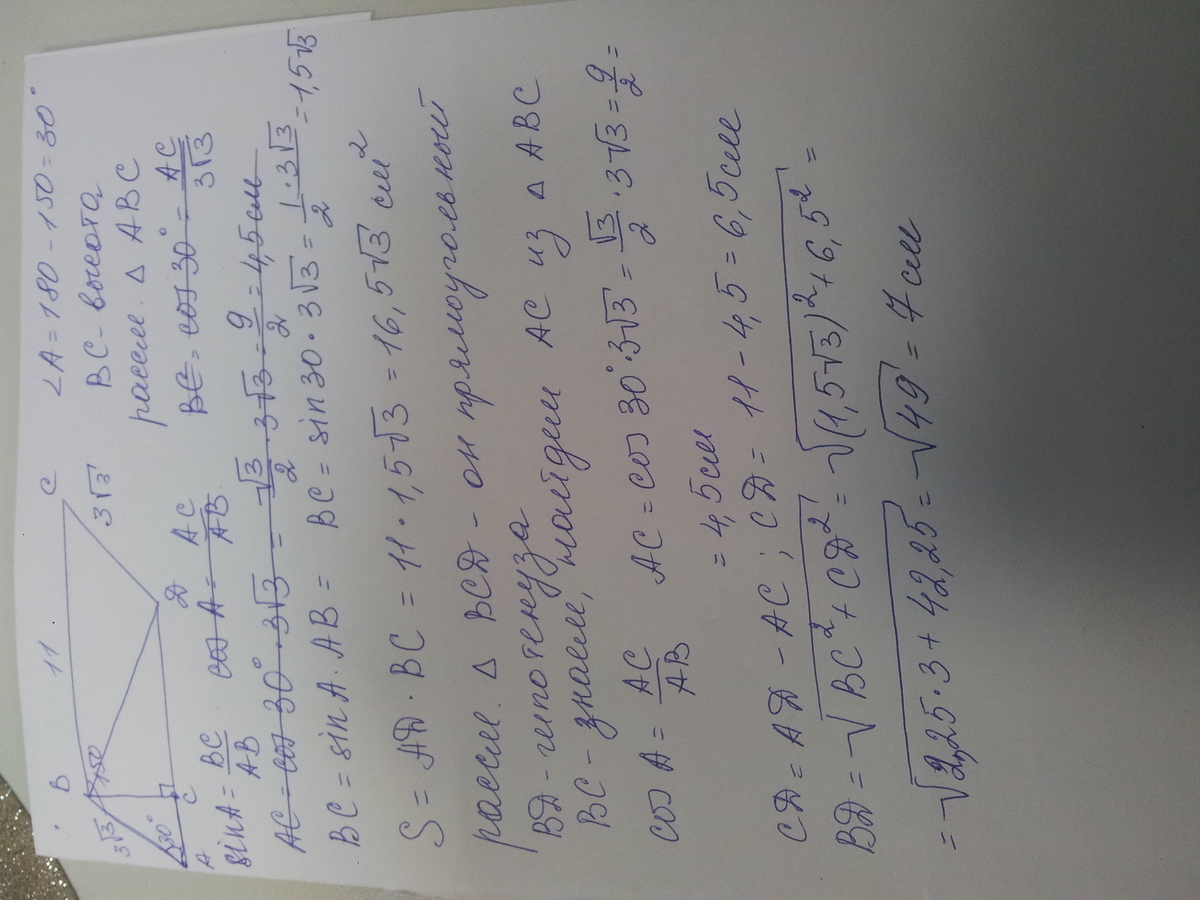 B 11 C
3√3 150 3√3
30°
A C D
∠A = 180 - 150 = 30°
BC - высота
рассм. △ ABC
BC = cos 30° = AC/3√3
sin A = BC/AB cos A = AC/AB
AC = cos 30° · 3√3 = √3/2 · 3√3 = 9/2 = 4,5 см
BC = sin A · AB = BC = sin 30 · 3√3 = 1/2 · 3√3 = 1,5√3
S = AD · BC = 11 · 1,5√3 = 16,5√3 см²
рассм. △ BCD - он прямоугольный
BD - гипотенуза
BC - знаем, найдем AC из △ ABC
cos A = AC/AB AC = cos 30° · 3√3 = √3/2 · 3√3 = 9/2 =
= 4,5 см
CD = AD - AC ; CD = 11 - 4,5 = 6,5 см
BD = √(BC² + CD²) = √((1,5√3)² + 6,5²) =
= √(2,25 · 3 + 42,25) = √49 = 7 см